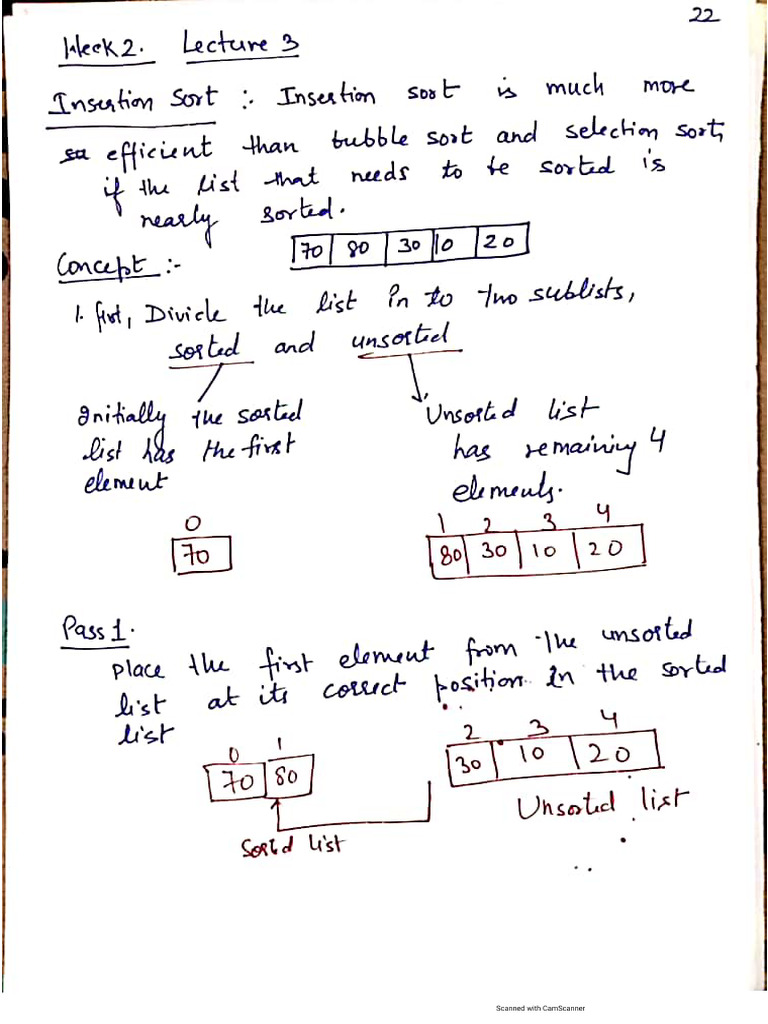 22
Week 2. Lecture 3
Insertion Sort :- Insertion sort is much more
efficient than bubble sort and selection sort,
if the list that needs to be sorted is
nearly sorted.
70 80 30 10 20
Concept :-
1. first, Divide the list in to two sublists,
sorted and unsorted
Initially the sorted
list has the first
element
Unsorted list
has remaining 4
elements.
0
70
1 2 3 4
80 30 10 20
Pass 1.
Place the first element from the unsorted
list at its correct position in the sorted
list
0 1
70 80
2 3 4
30 10 20
Sorted list
Unsorted list
Scanned with CamScanner